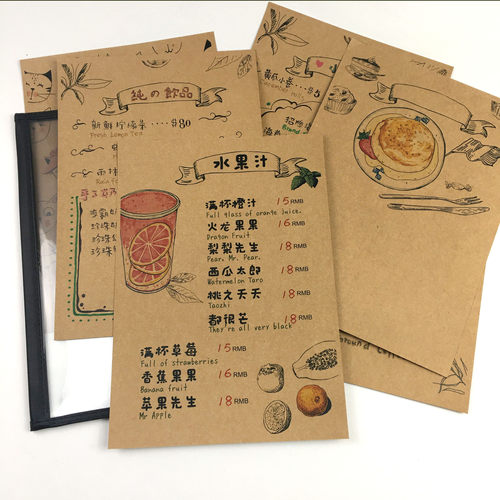 純の飲品
新鮮柠檬茶····#80
Fresh Lemon Tea
水果汁
满杯橙汁 15RMB
Full glass of orante Juice.
火龙果果 16RMB
Draton Fruit
梨梨先生 18RMB
Pear, Mr. Pear.
西瓜太郎 18RMB
Watermelon Taro
桃之夭夭 18RMB
Taozhi
都很芒 18RMB
They're all very black
满杯草莓 15RMB
Full of strawberries
香蕉果果 16RMB
Banana fruit
苹果先生 18RMB
Mr Apple